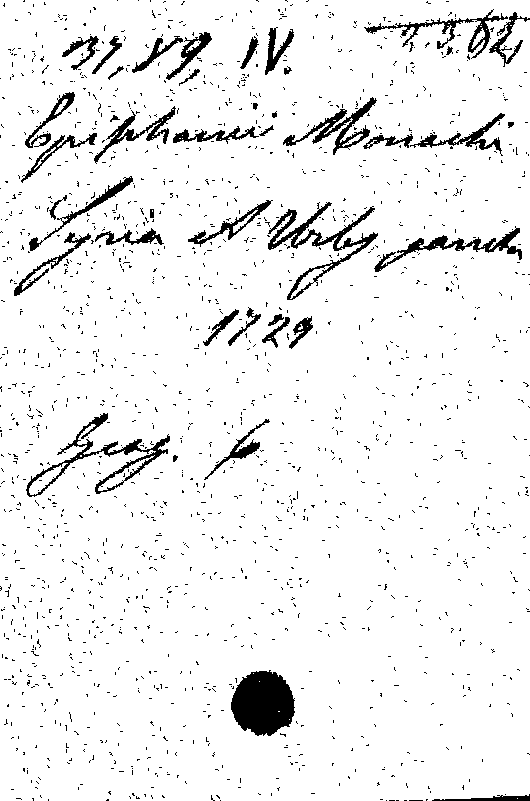 37,89, IV. 2.3.62,
Epiphanii Monachi
Syria et Urbs sancta
1729
Geog. 6